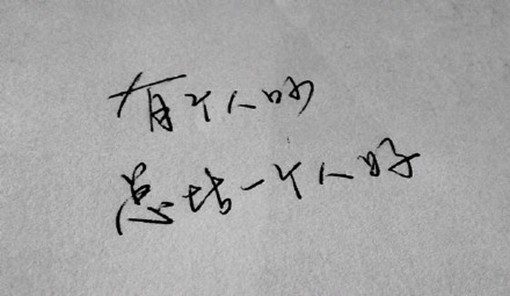 有个人吵
总比一个人好